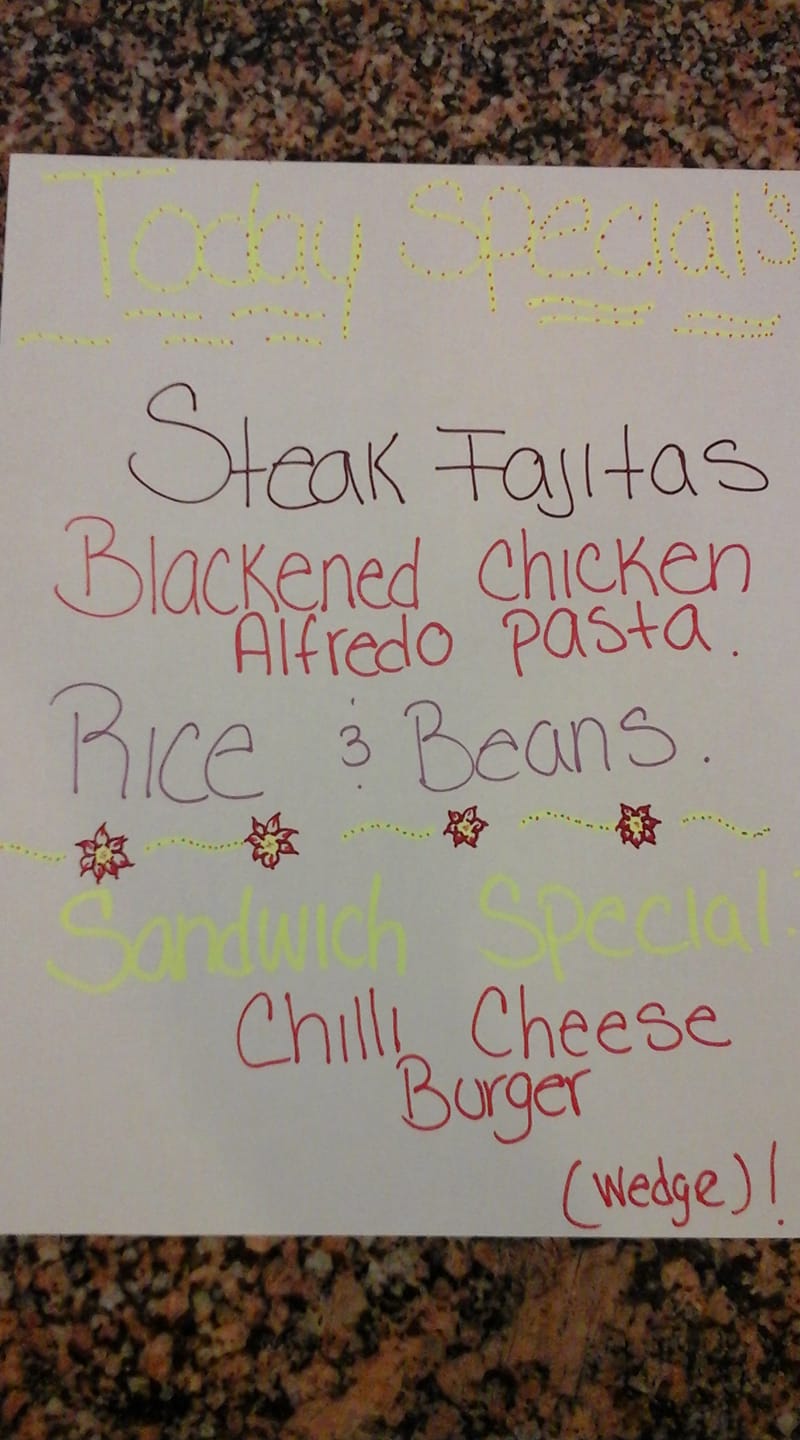 Today Special's
Steak Fajitas
Blackened Chicken
Alfredo pasta.
Rice & Beans.
Sandwich Special:
Chilli Cheese
Burger
(Wedge)!